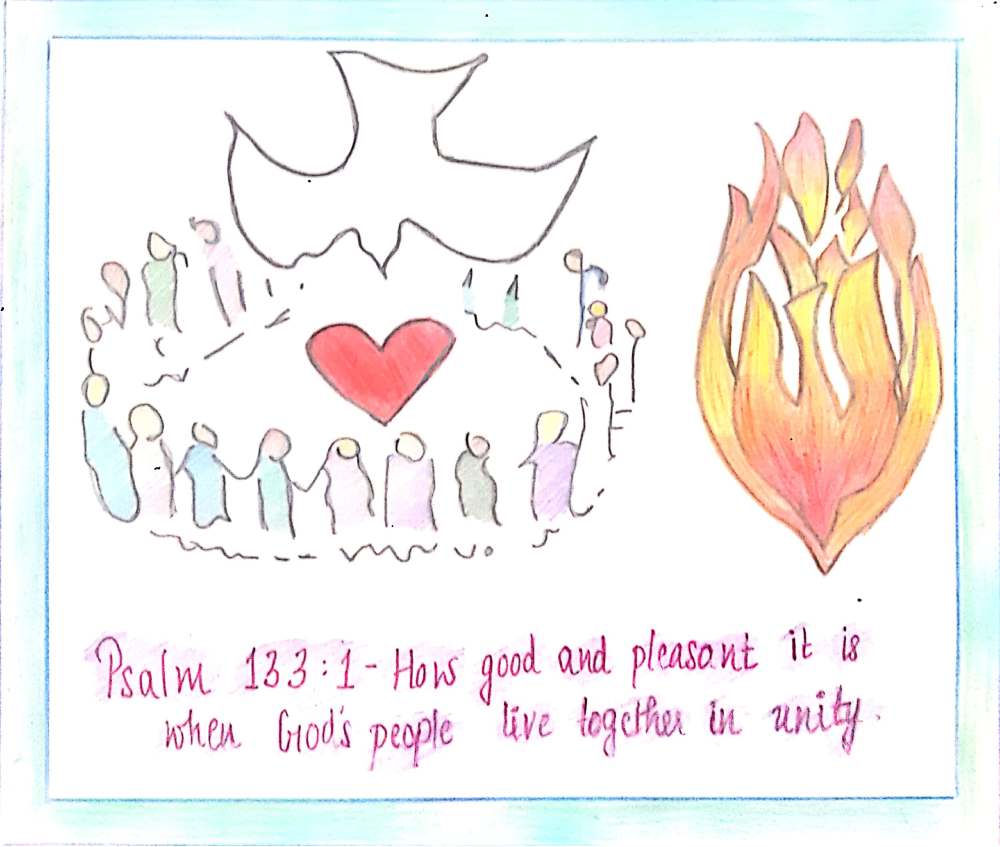 Psalm 133:1 - How good and pleasant it is
when God's people live together in unity.